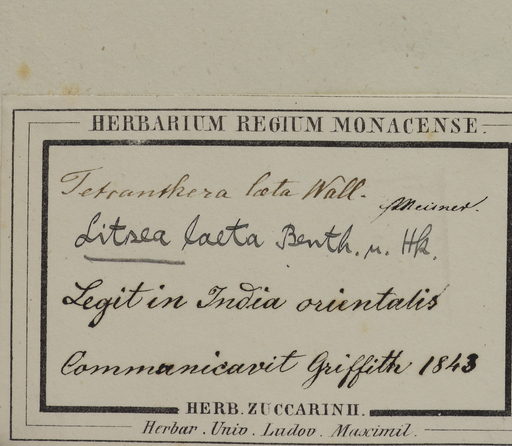 HERBARIUM REGIUM MONACENSE.
Tetranthera læta Wall.
Meisner.
Litsea laeta Benth. u. Hk.
Legit in India orientalis
Communicavit Griffith 1843
HERB. ZUCCARINII.
Herbar. Univ. Ludov. Maximil.